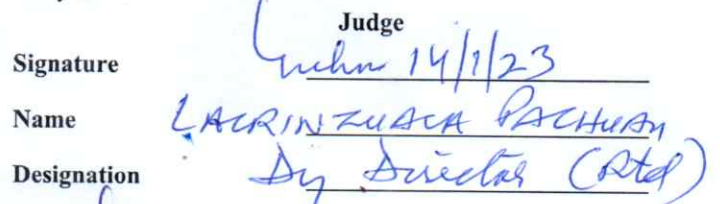 Judge
Signature 14/1/23
Name LALRINZUALA PACHUAU
Designation Dy Director (Rtd)